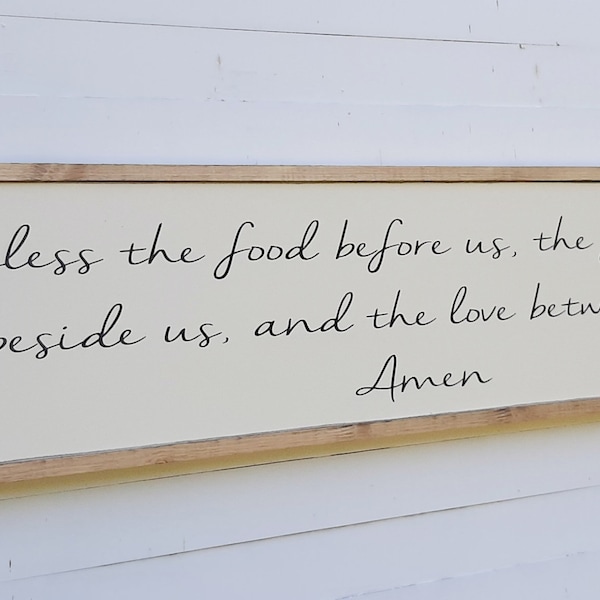 less the food before us, the
beside us, and the love betw
Amen